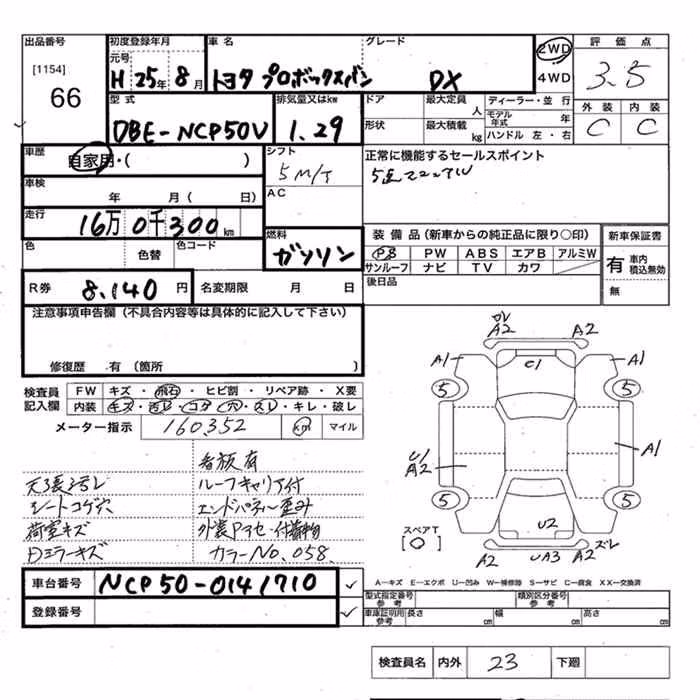 出品番号 初度登録年月 車名 グレード 2WD 評価点
[1154] 元号
66 H 25年 8月 トヨタ プロボックスバン DX 4WD 3.5
型式 排気量又はkw ドア 最大定員 人 ディーラー・並 行 外装 内装
DBE-NCP50V 1.29 形状 最大積載 kg モデル年式 年 ハンドル 左・右 C C
車歴 自家用・( ) シフト 5M/T 正常に機能するセールスポイント
車検 年 月( 日) AC
走行 16万 0千 300 km
色 色替 色コード 燃料 ガソリン 装備品(新車からの純正品に限り○印) 新車保証書
PS PW ABS エアB アルミW 有 車内積込無効
サンルーフ ナビ TV カワ
R券 8.140 円 名変期限 月 日 後日品 無
注意事項申告欄(不具合内容等は具体的に記入して下さい)
修復歴 有(箇所 )
検査員記入欄 FW キズ・飛石・ヒビ割・リペア跡・X要
内装 キズ・汚レ・コゲ・穴・スレ・キレ・破レ
メーター指示 160352 km マイル
看板有
天張ヨゴレ ルーフキャリア付
シートコゲ穴 エンドパネル歪み
荷室キズ
Dミラーキズ カラーNo.058
車台番号 NCP50-0141710
登録番号
A2 A2
A1 C1 A1
5 5
U1 A2 A1
5 5
スペアT U2 ズレ
[○] A2 UA3 A2
A－キズ E－エクボ U－凹み W－補修跡 S－サビ C－腐食 XX－交換済
型式指定番号 参考 類別区分番号 参考
車庫証明用 参考 長さ cm 幅 cm 高さ cm
検査員名 内外 23 下廻